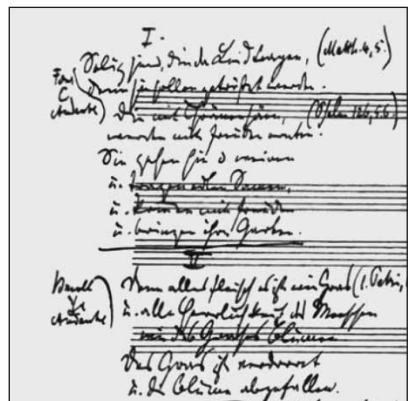 I.
Selig sind, die da Leid tragen, (Matth. 4, 5.)
denn sie sollen getröstet werden.
Die mit Thränen säen, (Psalm 126, 5.6
werden mit Freuden ernten.
Sie gehen hin u weinen
u. tragen edlen Samen,
u. kommen mit Freuden
u. bringen ihre Garben.
II
Denn alles Fleisch es ist wie Gras (1. Petri,
u. alle Herrlichkeit des Menschen
wie des Grases Blumen
Das Gras ist verdorret
u. die Blume abgefallen.
F
C
Andante
B moll
3/4
Andante